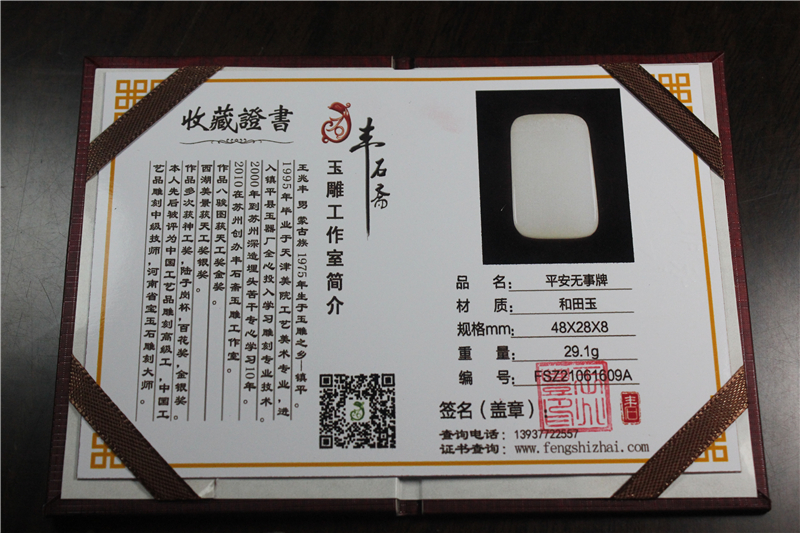 收藏證書
丰石斋
玉雕工作室简介
王兆丰 男 蒙古族 1975年生于玉雕之乡—镇平。
1995年毕业于天津美院工艺美术专业，进
入镇平县玉器厂全心投入学习雕刻专业技术。
2000年到苏州深造埋头苦干专心学习10年。
2010在苏州创办丰石斋玉雕工作室。
作品八骏图获天工奖金奖。
西湖美景获天工奖银奖。
作品多次获神工奖，陆子岗杯，百花奖，金银奖。
本人先后被评为中国工艺品雕刻高级工，中国工
艺品雕刻中级技师，河南省宝玉石雕刻大师。
品 名： 平安无事牌
材 质： 和田玉
规格mm： 48X28X8
重 量： 29.1g
编 号： FSZ21061609A
签名（盖章）
查询电话： 13937722557
证书查询： www.fengshizhai.com